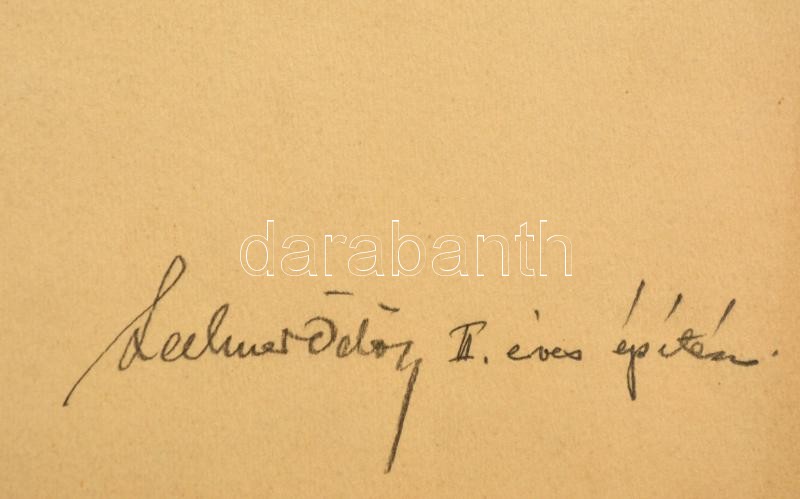 darabanth
Lechner Ödön II. éves építész.